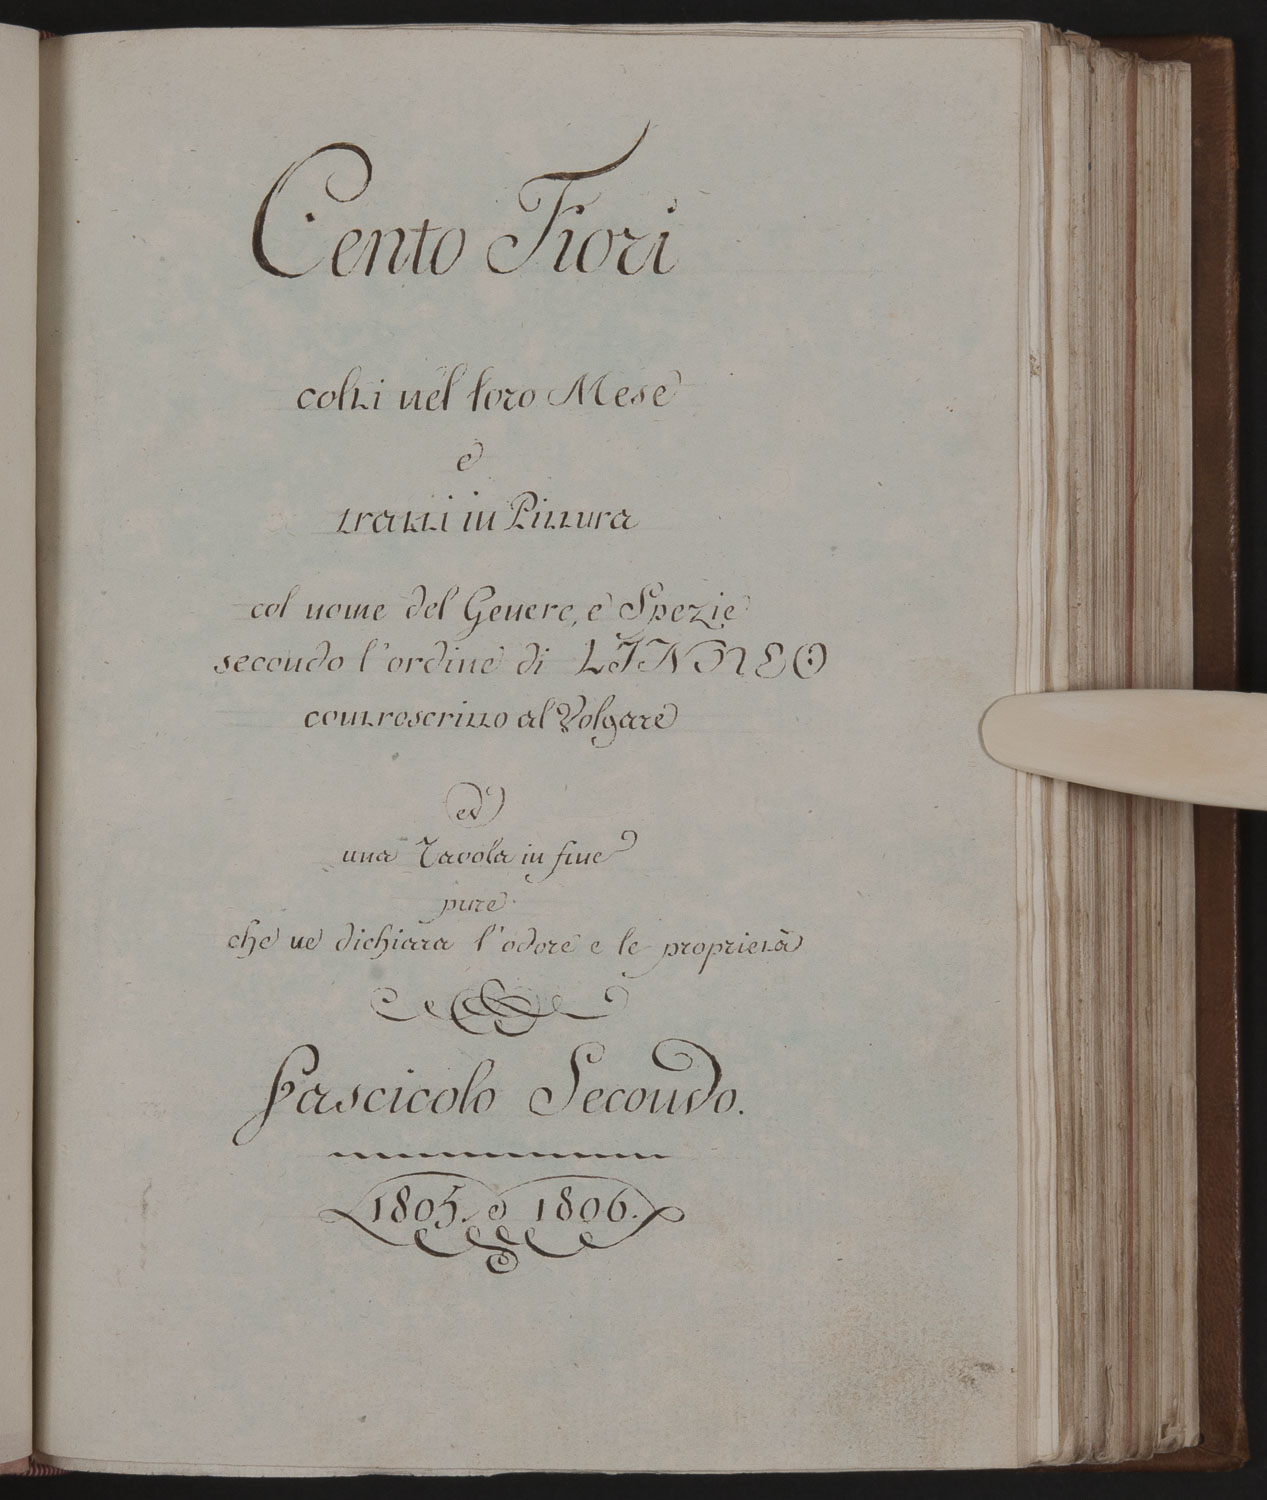 Cento Fiori
colti nel loro Mese
e
tratti in Pittura
col nome del Genere, e Spezie
secondo l'ordine di LINNEO
controscritto al Volgare
ed
una Tavola in fine
pure
che ne dichiara l'odore e le proprietà
Fascicolo Secondo.
1805. e 1806.